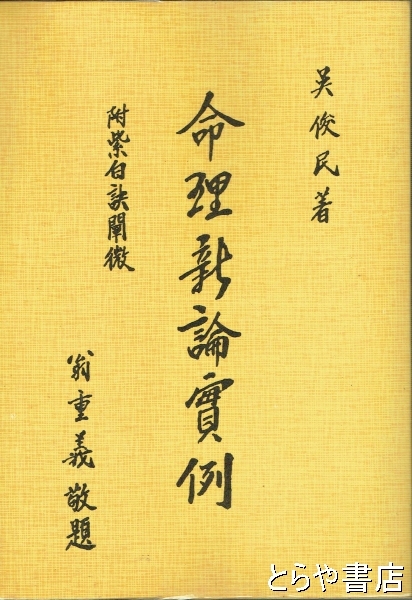 吴俊民著
命理新論實例
附紫白訣闡微
翁重義敬題
とらや書店